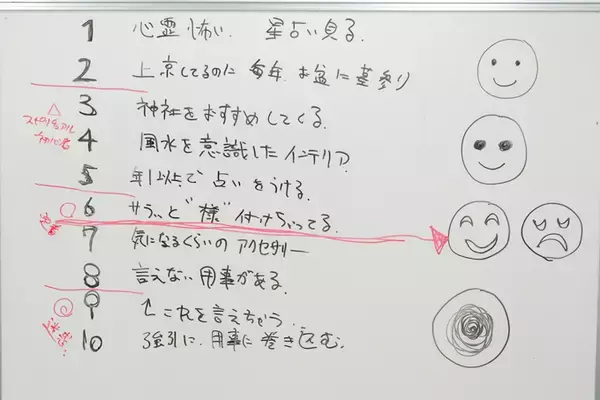 1 心霊怖い. 星占い見る.
2 上京してるのに 毎年 お盆に墓参り
△
スピリチュアル
初心者
3 神社をおすすめしてくる.
4 風水を意識したインテリア.
5 年1以上で 占いをうける.
○
6 サラッと"様"付けちゃってる.
7 気になるくらいの アクセサリー
8 言えない用事がある.
◎
9 ↑これを言えちゃう.
10 強引に 用事に巻き込む.